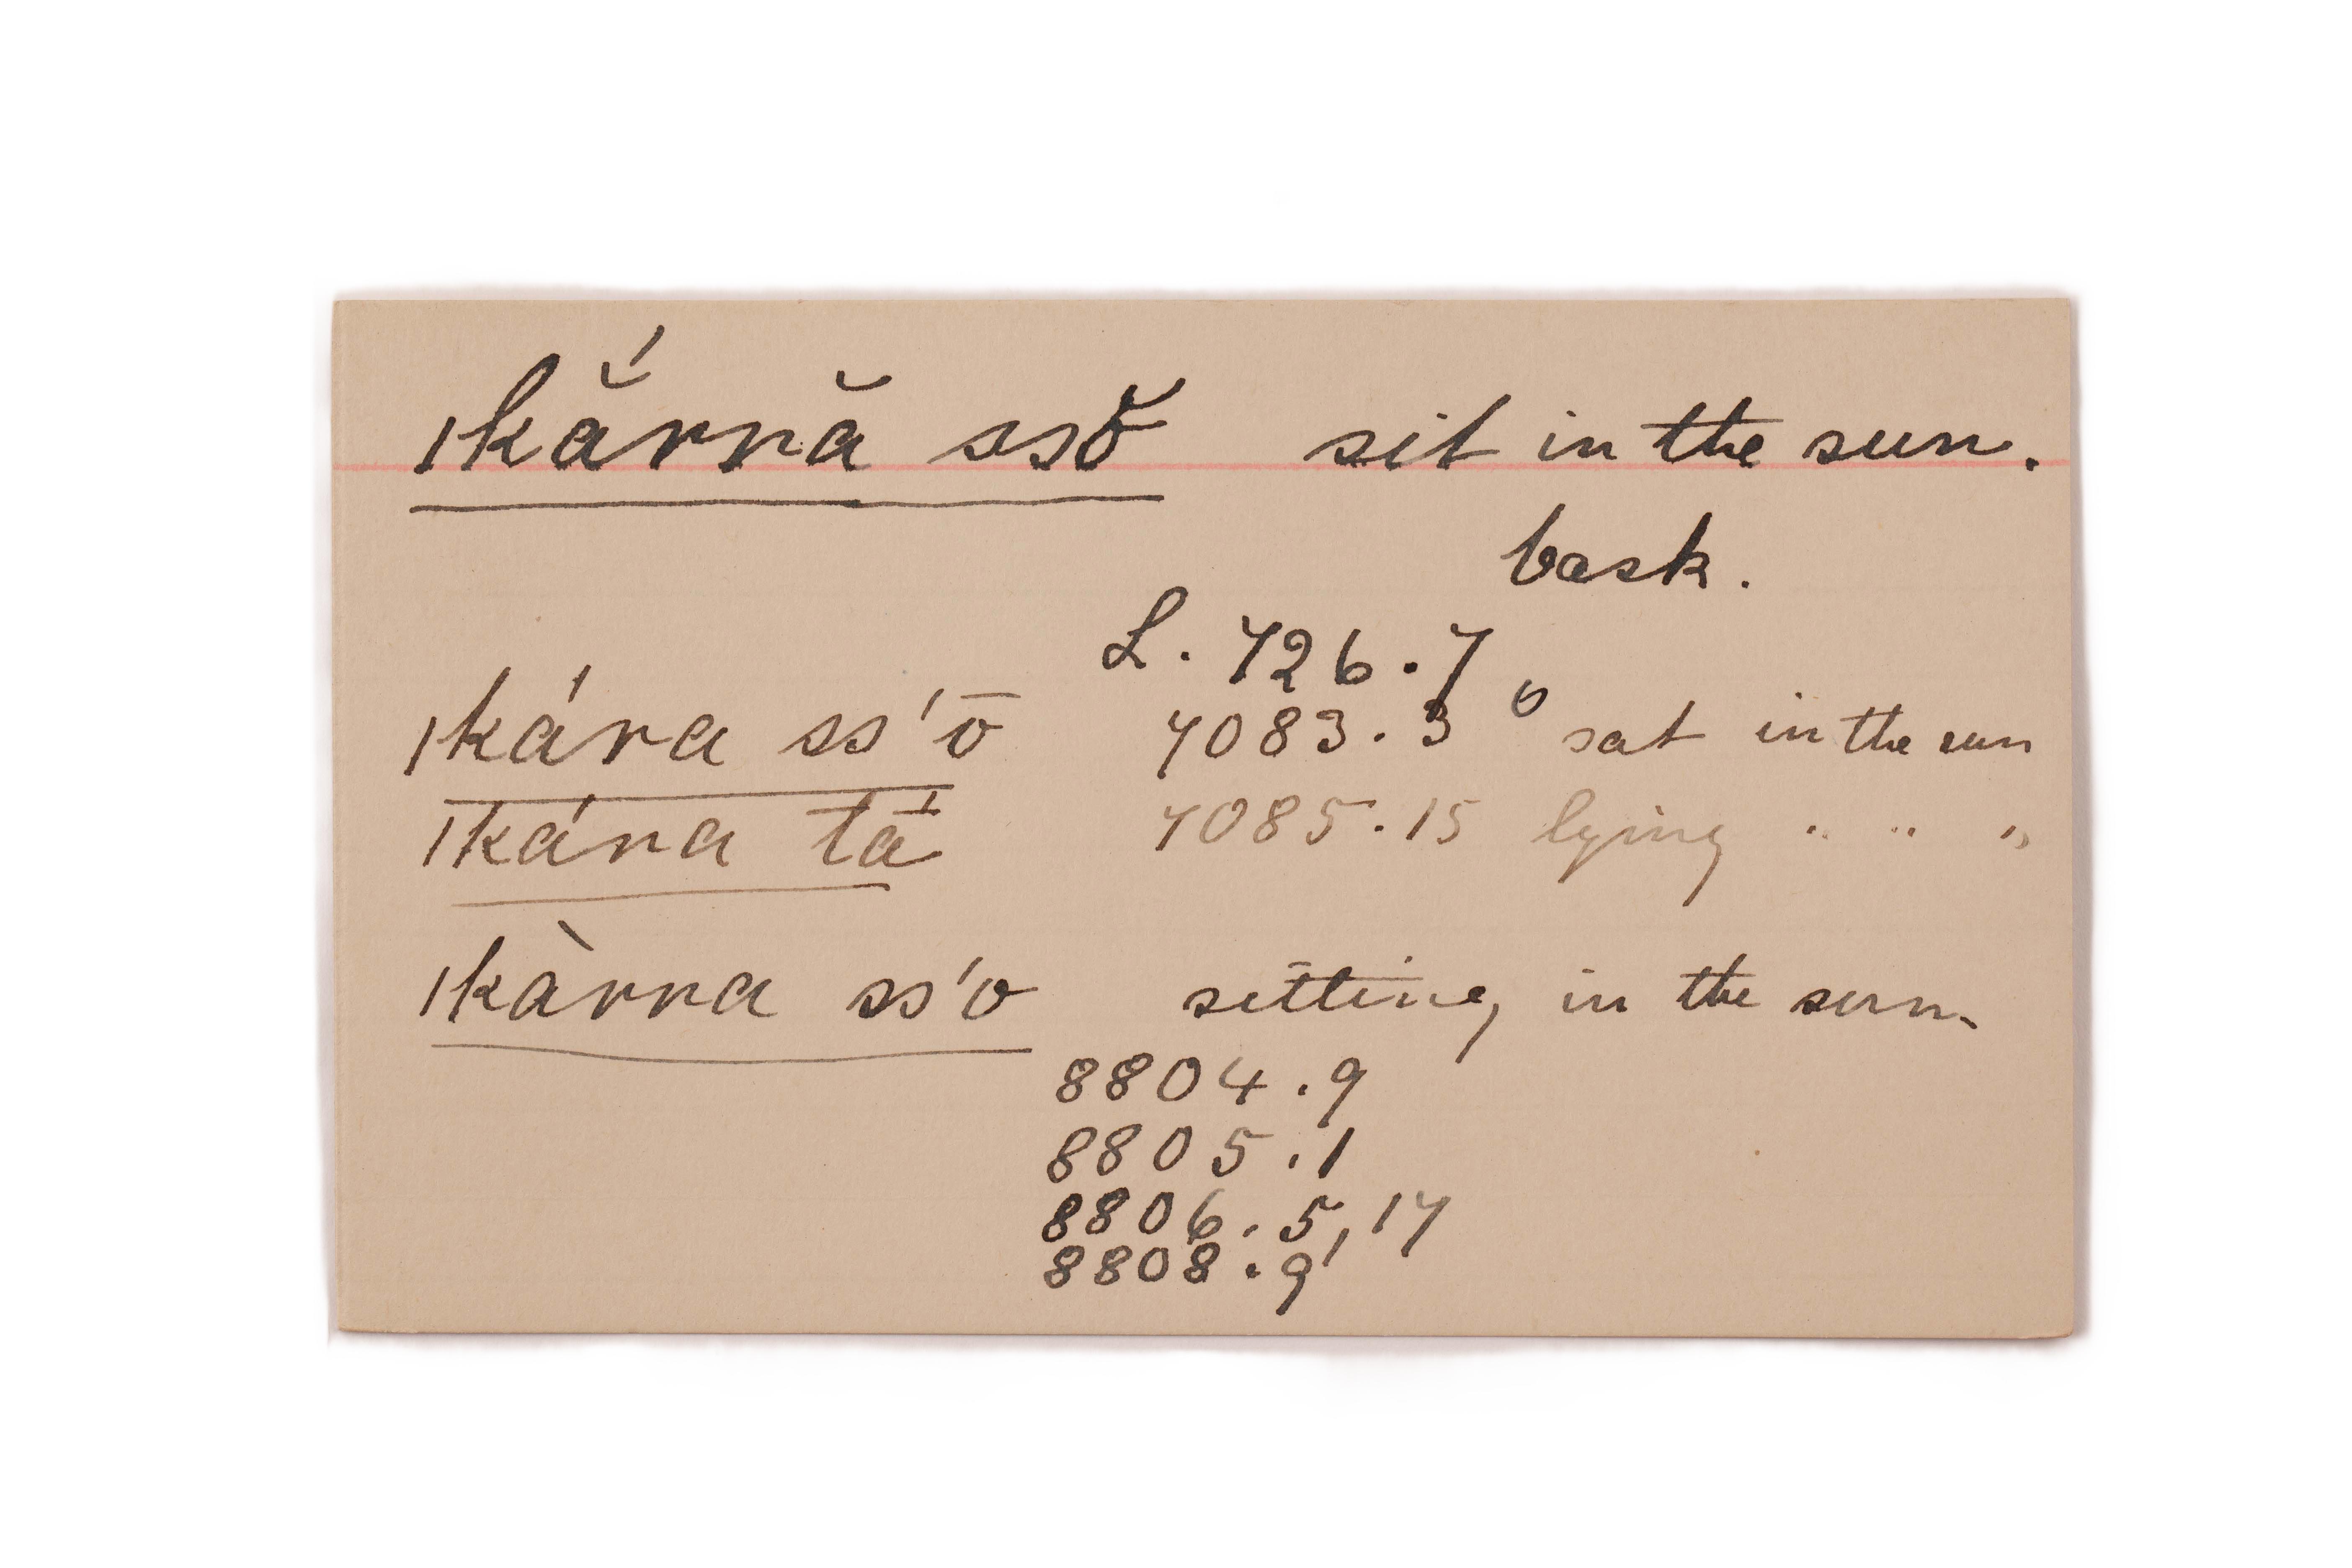 ıkắrnă ssŏ sit in the sun.
bask.
L. 726.7
ıkára ss'ō 7083.3 sat in the sun
ıkána tā 7085.15 lying " " "
ıkàrra ss'o sitting in the sun.
8804.9
8805.1
8806.5,17
8808.9